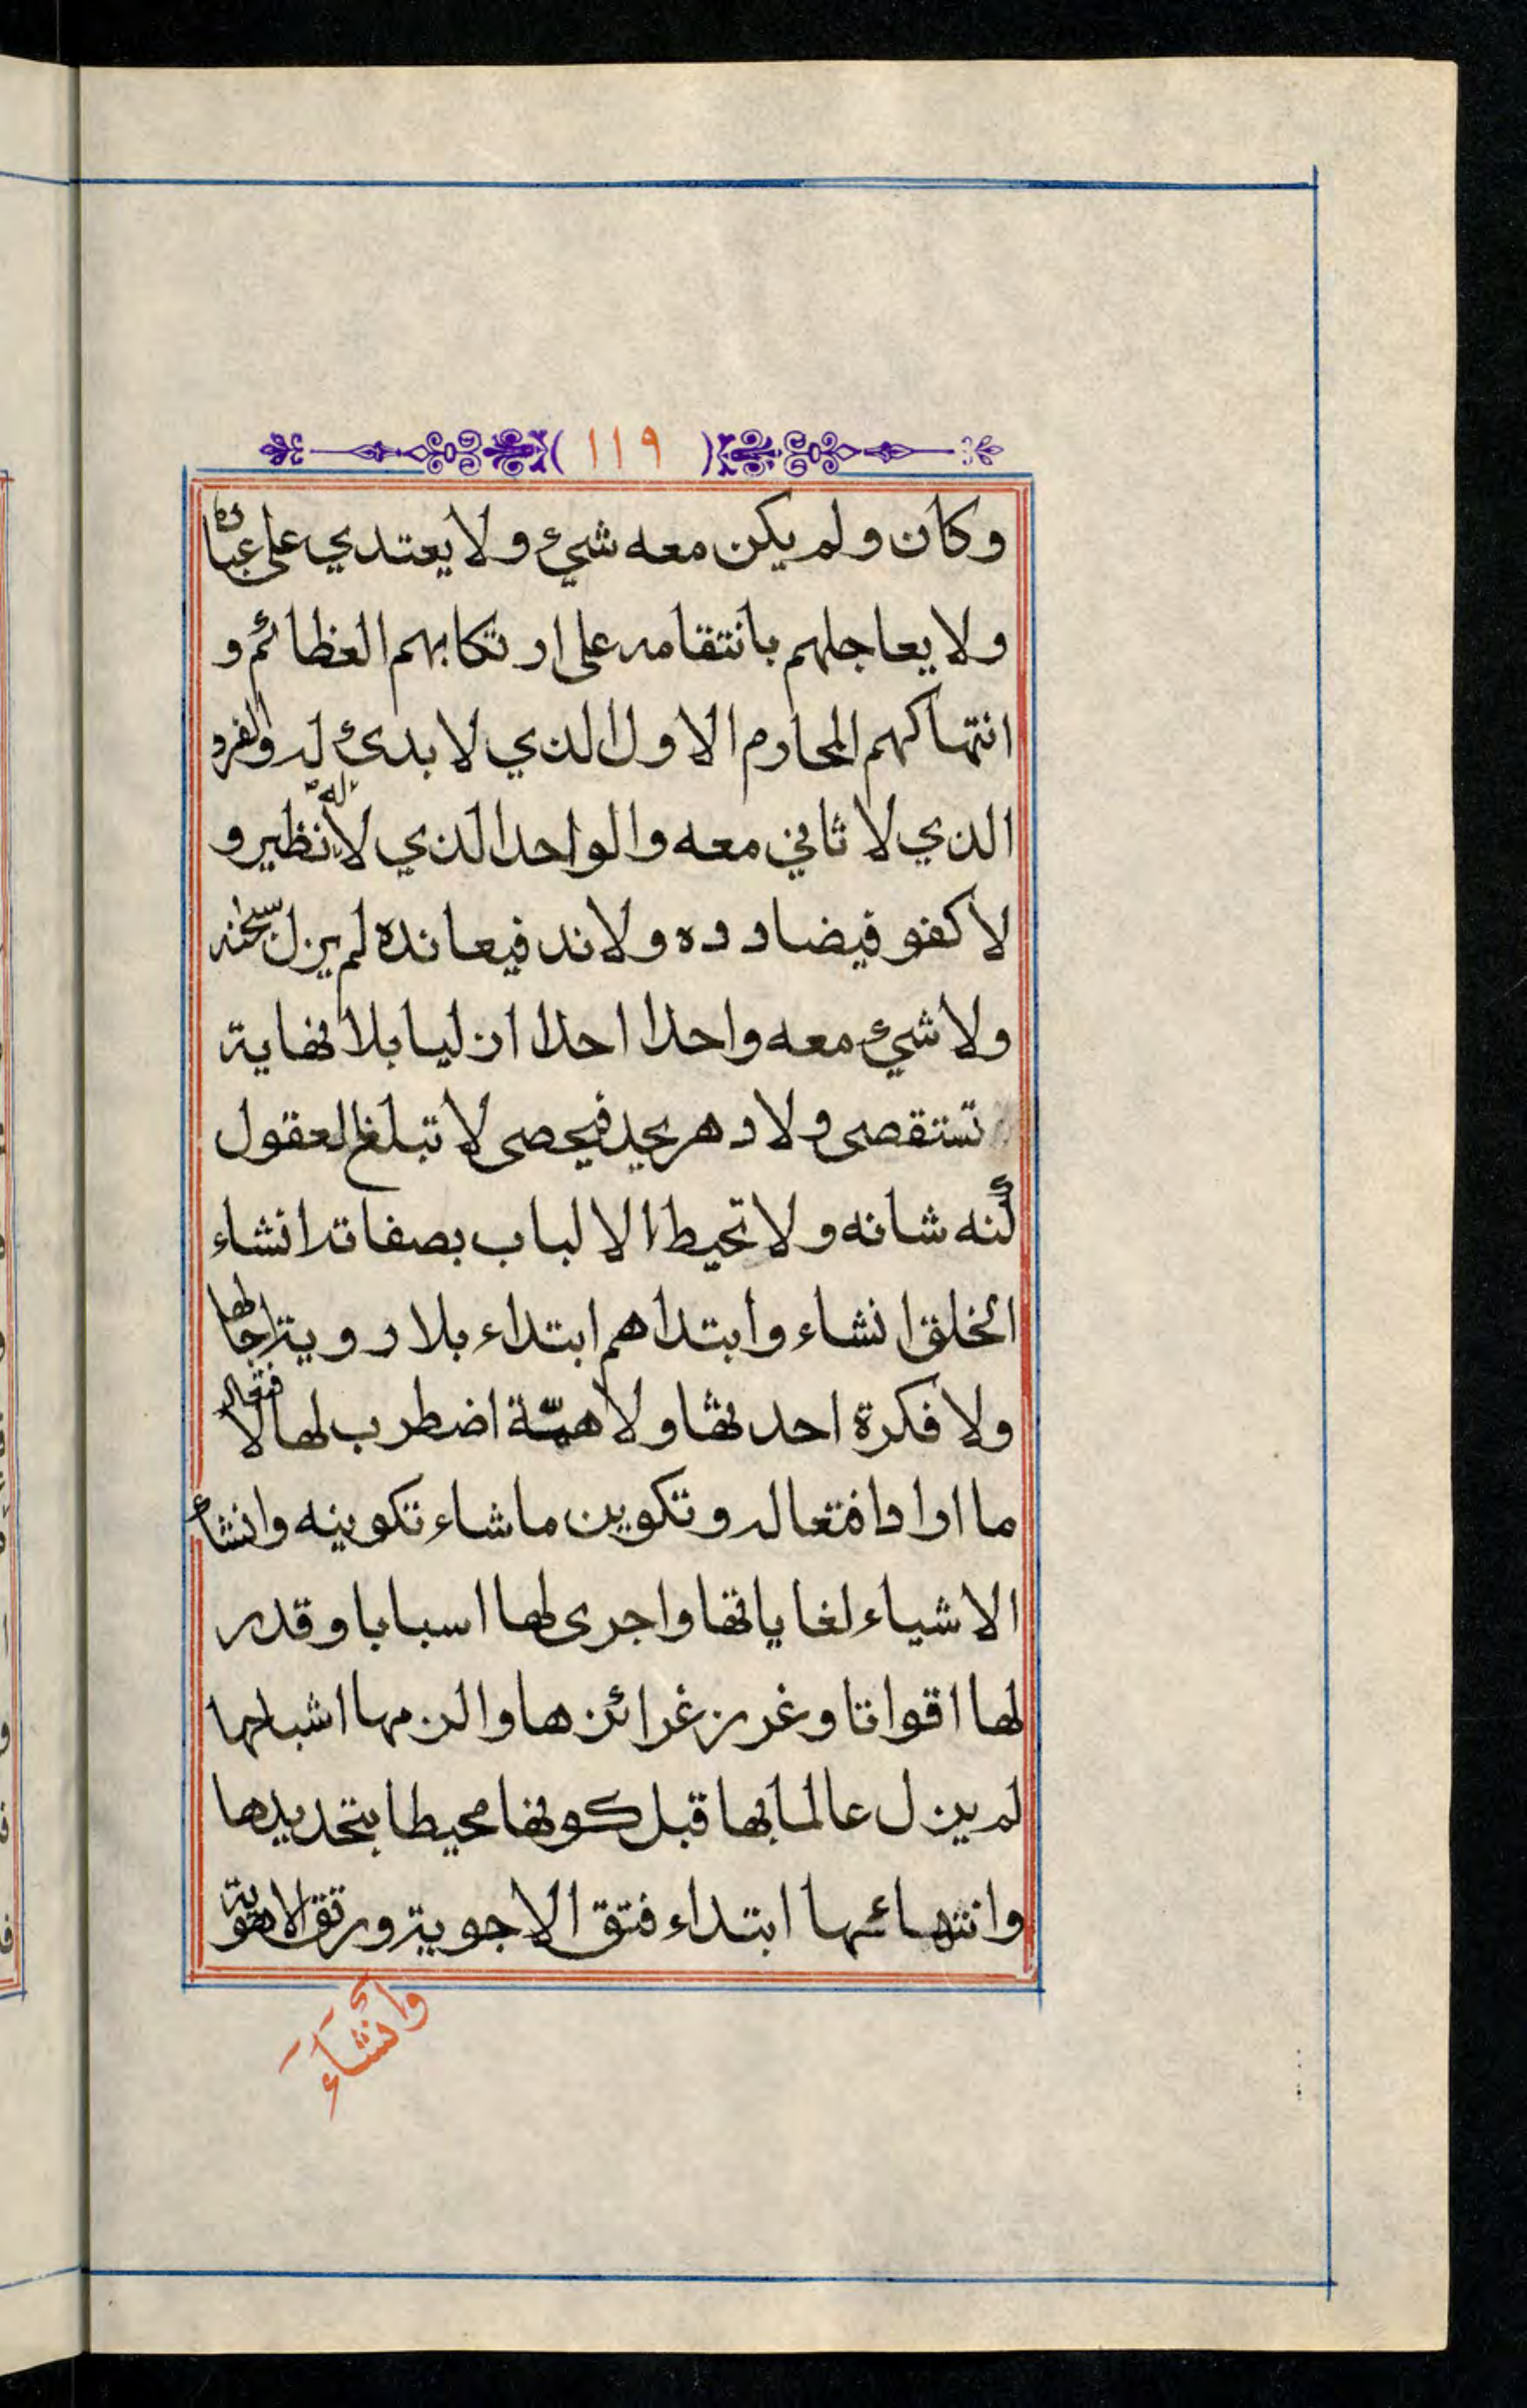 ١١٩
وكان ولم يكن معه شيء ولا يعتدي على عباده
ولا يعاجلهم بانتقامه على ارتكابهم العظائم و
انتهاكهم المحارم الاول الذي لا بدئ له والفرد
الذي لا ثاني معه والواحد الذي لا له نظير و
لا كفو فيضادده ولا ند فيعانده لم يزل سبحنه
ولا شيء معه واحدا احدا ازليا بلا نهاية
تستقصى ولا دهر يحد فيحصى لا تبلغ العقول
كنه شانه ولا تحيط الالباب بصفاته انشاء
الخلق انشاء وابتداهم ابتداء بلا روية اجالها
ولا فكرة احدثها ولا همّة اضطرب لها لافتعال
ما اراد افتعاله وتكوين ما شاء تكوينه وانشاء
الاشياء لغاياتها واجرى لها اسبابا وقدر
لها اقواتا وغرز غرائزها والزمها اشباحها
لم يزل عالما بها قبل كونها محيطا بتحديدها
وانتهائها ابتداء فتق الاجوية ورتق الاهوية
وأنشاء